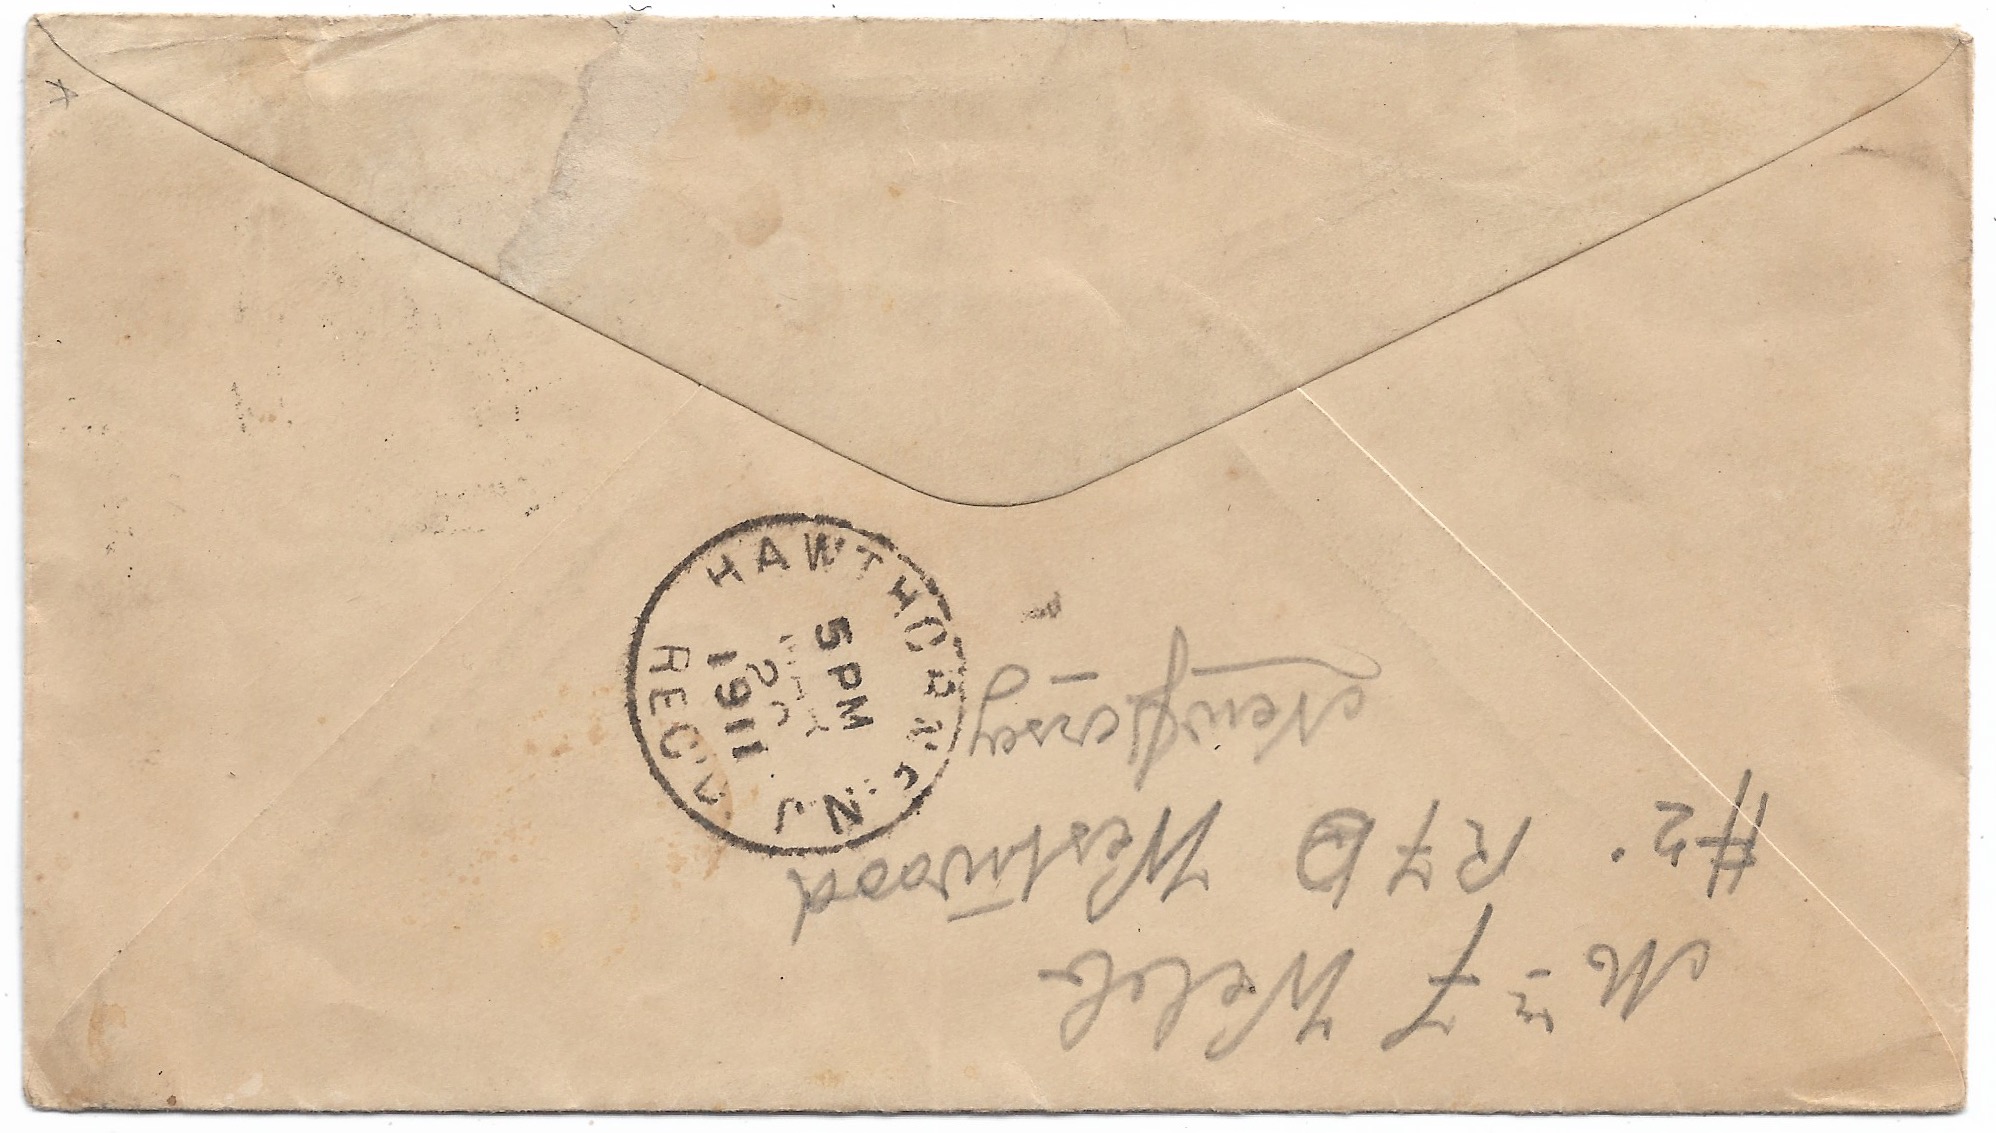 HAWTHORNE N.J.
5 PM
20
1911
REC'D
Mrs F Welch
#2. R F D Westwood
New Jersey